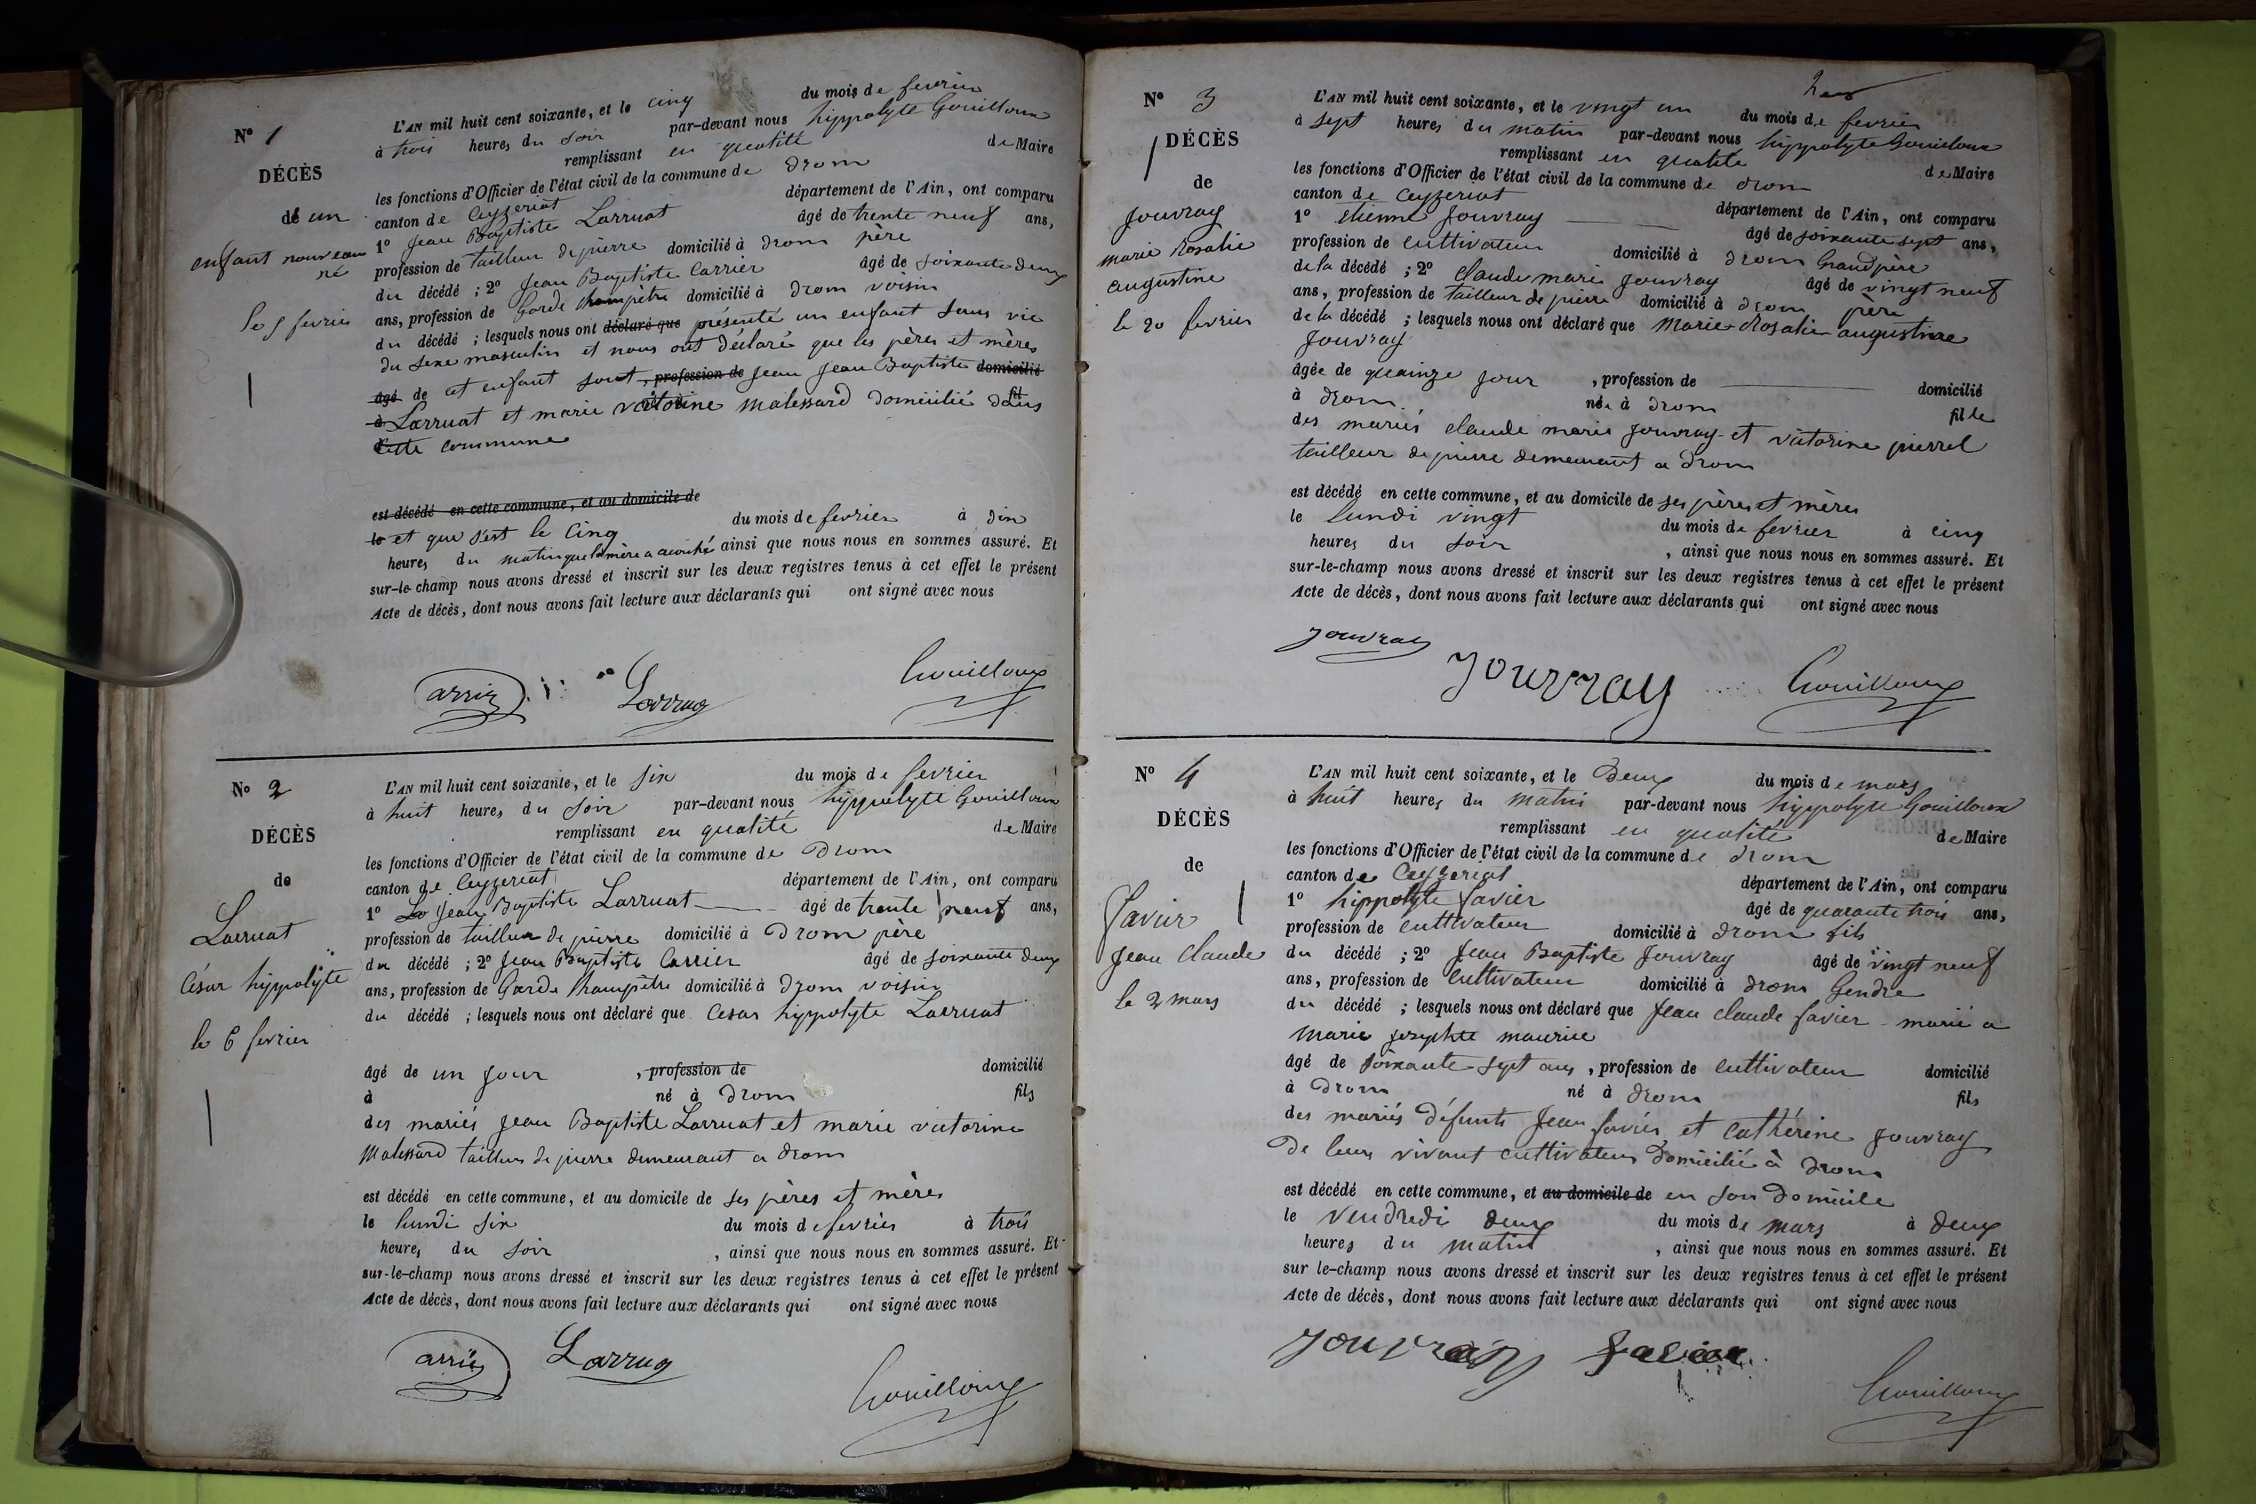 N° 1
DÉCÈS
de un
enfant nouveau
né
le 5 fevrier
L'AN mil huit cent soixante, et le cinq du mois de fevrier
à trois heures du soir par-devant nous hippolyte Gouilloux
remplissant en qualité de Maire
les fonctions d'Officier de l'état civil de la commune de Drom
canton de Ceyzeriat département de l'Ain, ont comparu
1° Jean Baptiste Larruat âgé de trente neuf ans,
profession de tailleur de pierre domicilié à Drom père
du décédé ; 2° Jean Baptiste Carrier âgé de soixante deux
ans, profession de Garde Champêtre domicilié à Drom voisin
du décédé ; lesquels nous ont déclaré que présenté un enfant sans vie
du sexe masculin et nous ont declaré que les pères et mères
âgé de cet enfant sont, profession de Jean Jean Baptiste domicilié
à Larruat et marie victorine Malessard domicilié dans
cette commune
est décédé en cette commune, et au domicile de
le et que s'est le cinq du mois de fevrier à dix
heures du matin que la mère a accouché ainsi que nous nous en sommes assuré. Et
sur-le-champ nous avons dressé et inscrit sur les deux registres tenus à cet effet le présent
Acte de décès, dont nous avons fait lecture aux déclarants qui ont signé avec nous
Larrua Gouilloux
N° 2
DÉCÈS
de
Larruat
César hippolyte
le 6 fevrier
L'AN mil huit cent soixante, et le six du mois de fevrier
à huit heures du soir par-devant nous hippolyte Gouilloux
remplissant en qualité de Maire
les fonctions d'Officier de l'état civil de la commune de Drom
canton de Ceyzeriat département de l'Ain, ont comparu
1° Jean Baptiste Larruat âgé de trente neuf ans,
profession de tailleur de pierre domicilié à Drom père
du décédé ; 2° Jean Baptiste Carrier âgé de soixante deux
ans, profession de Garde Champêtre domicilié à Drom voisin
du décédé ; lesquels nous ont déclaré que Cesar hippolyte Larruat
âgé de un jour , profession de domicilié
à né à Drom fils
des mariés Jean Baptiste Larruat et marie victorine
Malessard tailleur de pierre demeurant a Drom
est décédé en cette commune, et au domicile de ses pères et mères
le lundi six du mois de fevrier à trois
heures du soir , ainsi que nous nous en sommes assuré. Et
sur-le-champ nous avons dressé et inscrit sur les deux registres tenus à cet effet le présent
Acte de décès, dont nous avons fait lecture aux déclarants qui ont signé avec nous
Larrua Gouilloux
N° 3
DÉCÈS
de
Jouvray
marie Rosalie
augustine
le 20 fevrier
L'AN mil huit cent soixante, et le vingt un du mois de fevrier
à sept heures du matin par-devant nous hippolyte Gouilloux
remplissant en qualité de Maire
les fonctions d'Officier de l'état civil de la commune de Drom
canton de Ceyzeriat département de l'Ain, ont comparu
1° Etienne Jouvray âgé de soixante sept ans,
profession de cultivateur domicilié à Drom Grandpère
de la décédé ; 2° Claude marie Jouvray âgé de vingt neuf
ans, profession de tailleur de pierre domicilié à Drom père
de la décédé ; lesquels nous ont déclaré que Marie Rosalie augustine
Jouvray
âgée de quainze jour , profession de domicilié
à Drom née à Drom fille
des mariés claude marie Jouvray et victorine pierrel
tailleur de pierre demeurant a Drom
est décédé en cette commune, et au domicile de ses pères et mères
le lundi vingt du mois de fevrier à cinq
heures du soir , ainsi que nous nous en sommes assuré. Et
sur-le-champ nous avons dressé et inscrit sur les deux registres tenus à cet effet le présent
Acte de décès, dont nous avons fait lecture aux déclarants qui ont signé avec nous
Jouvray
Jouvray Gouilloux
N° 4
DÉCÈS
de
Favier
Jean Claude
le 2 mars
L'AN mil huit cent soixante, et le Deux du mois de mars
à huit heures du matin par-devant nous hippolyte Gouilloux
remplissant en qualité de Maire
les fonctions d'Officier de l'état civil de la commune de Drom
canton de Ceyzeriat département de l'Ain, ont comparu
1° hippolyte Favier âgé de quarante trois ans,
profession de cultivateur domicilié à Drom fils
du décédé ; 2° Jean Baptiste Jouvray âgé de vingt neuf
ans, profession de Cultivateur domicilié à Drom Gendre
du décédé ; lesquels nous ont déclaré que Jean claude favier marié a
Marie josephte maurice
âgé de soixante sept ans , profession de cultivateur domicilié
à Drom né à Drom fils
des mariés Défunts Jean favier et cathérine Jouvray
De leurs vivant cultivateur Domicilié à Drom
est décédé en cette commune, et au domicile de en son Domicile
le vendredi deux du mois de mars à deux
heures du matin , ainsi que nous nous en sommes assuré. Et
sur le-champ nous avons dressé et inscrit sur les deux registres tenus à cet effet le présent
Acte de décès, dont nous avons fait lecture aux déclarants qui ont signé avec nous
Jouvray favier
Gouilloux